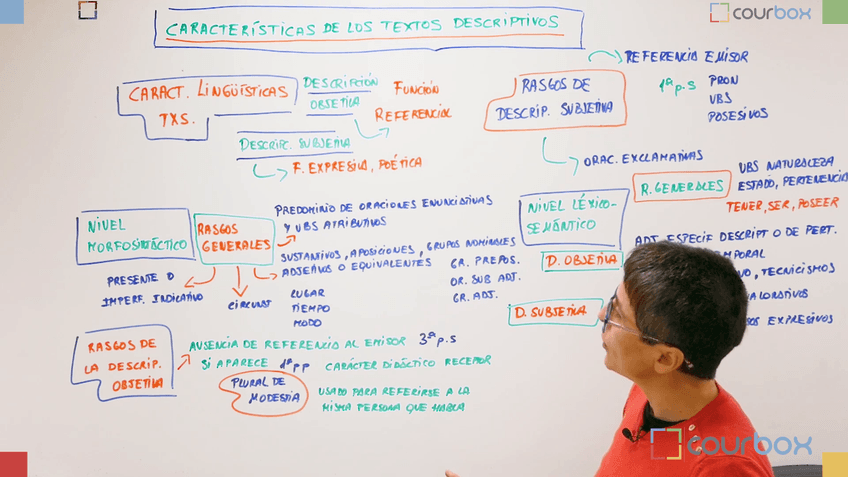 courbox
CARACTERÍSTICAS DE LOS TEXTOS DESCRIPTIVOS
CARACT. LINGÜÍSTICAS
TXS.
DESCRIPCIÓN
OBJETIVA
FUNCIÓN
REFERENCIAL
DESCRIPC. SUBJETIVA
F. EXPRESIVA, POÉTICA
RASGOS DE
DESCRIP. SUBJETIVA
REFERENCIA EMISOR
1ª p.s
PRON
VBS
POSESIVOS
ORAC. EXCLAMATIVAS
NIVEL
MORFOSINTÁCTICO
RASGOS
GENERALES
PREDOMINIO DE ORACIONES ENUNCIATIVAS
Y VBS ATRIBUTIVOS
SUSTANTIVOS, APOSICIONES, GRUPOS NOMINALES
ADJETIVOS O EQUIVALENTES
GR. PREPOS.
OR. SUB ADJ.
GR. ADJ.
PRESENTE O
IMPERF. INDICATIVO
CIRCUNST
LUGAR
TIEMPO
MODO
RASGOS DE
LA DESCRIP.
OBJETIVA
AUSENCIA DE REFERENCIA AL EMISOR 3ª p.s
SI APARECE 1ª p p CARÁCTER DIDÁCTICO RECEPTOR
PLURAL DE
MODESTIA
USADO PARA REFERIRSE A LA
MISMA PERSONA QUE HABLA
NIVEL LÉXICO-
SEMÁNTICO
R. GENERALES
VBS NATURALEZA
ESTADO, PERTENENCIA
TENER, SER, POSEER
D. OBJETIVA
ADJ ESPECIF DESCRIPT O DE PERT.
TECNICISMOS
D. SUBJETIVA
EXPRESIVOS
courbox